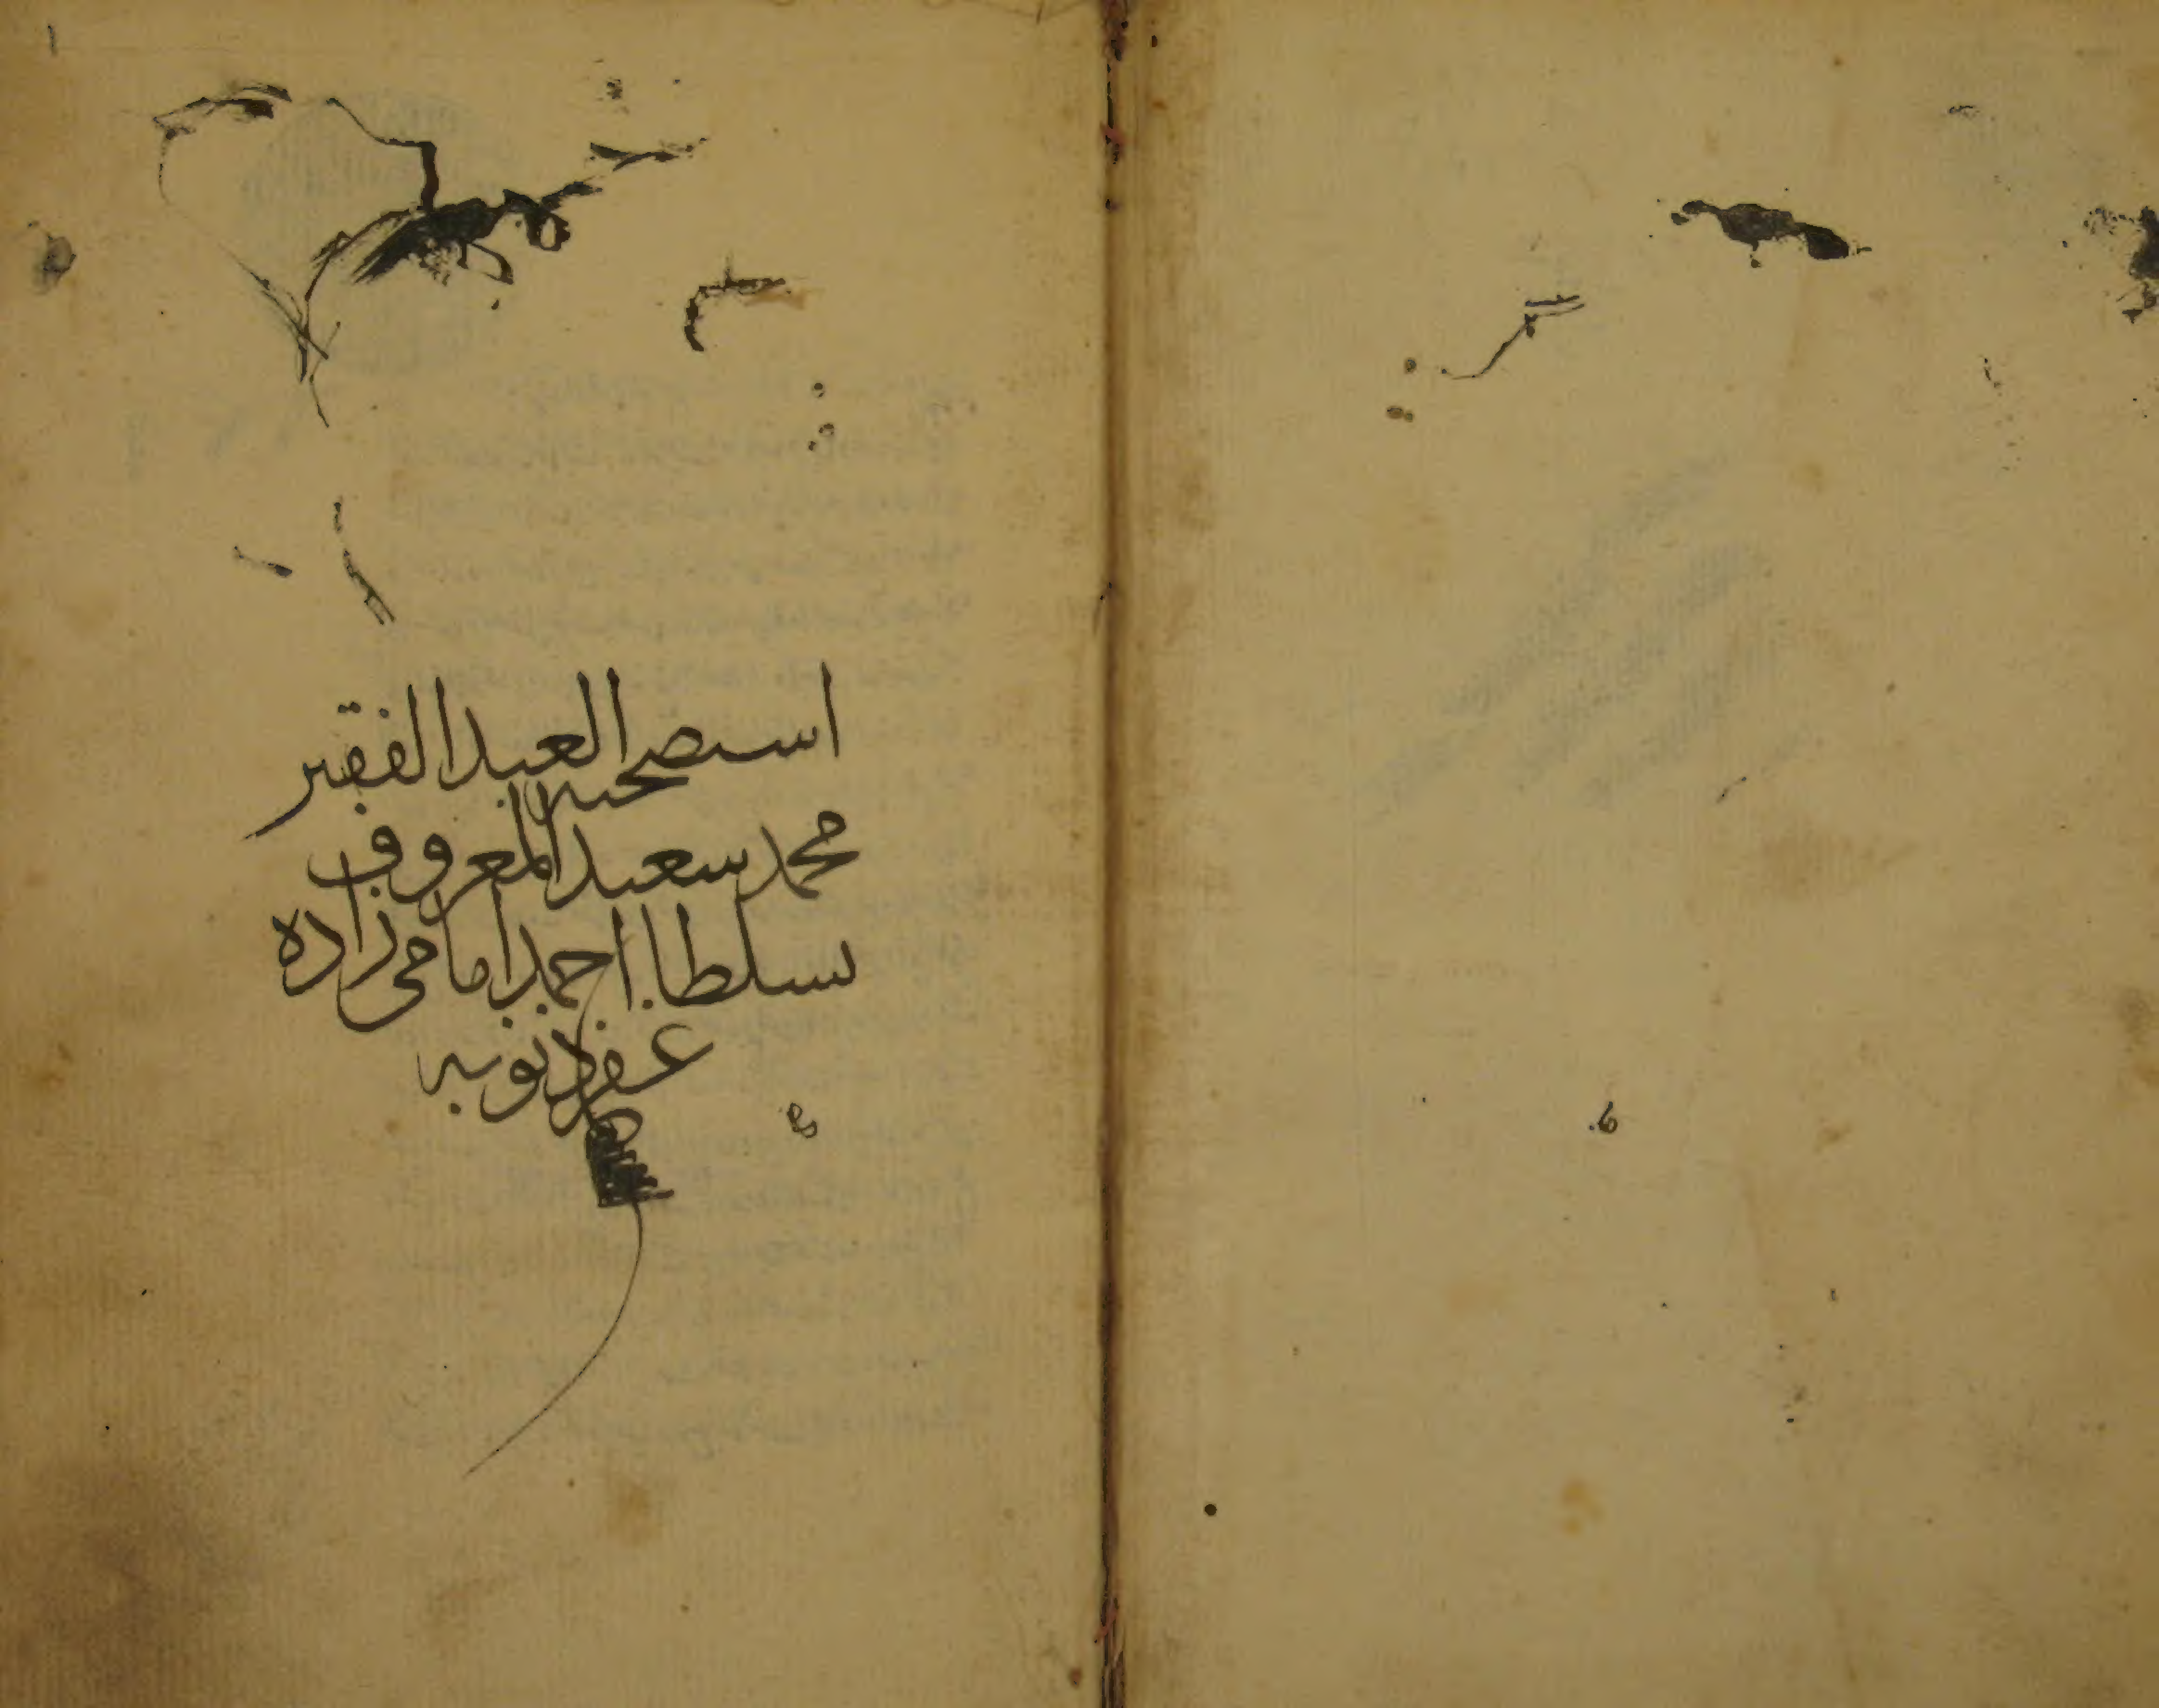 استصحبه العبد الفقير
محمد سعيد المعروف
بسلطان احمد امامی زاده
غفر ذنوبه